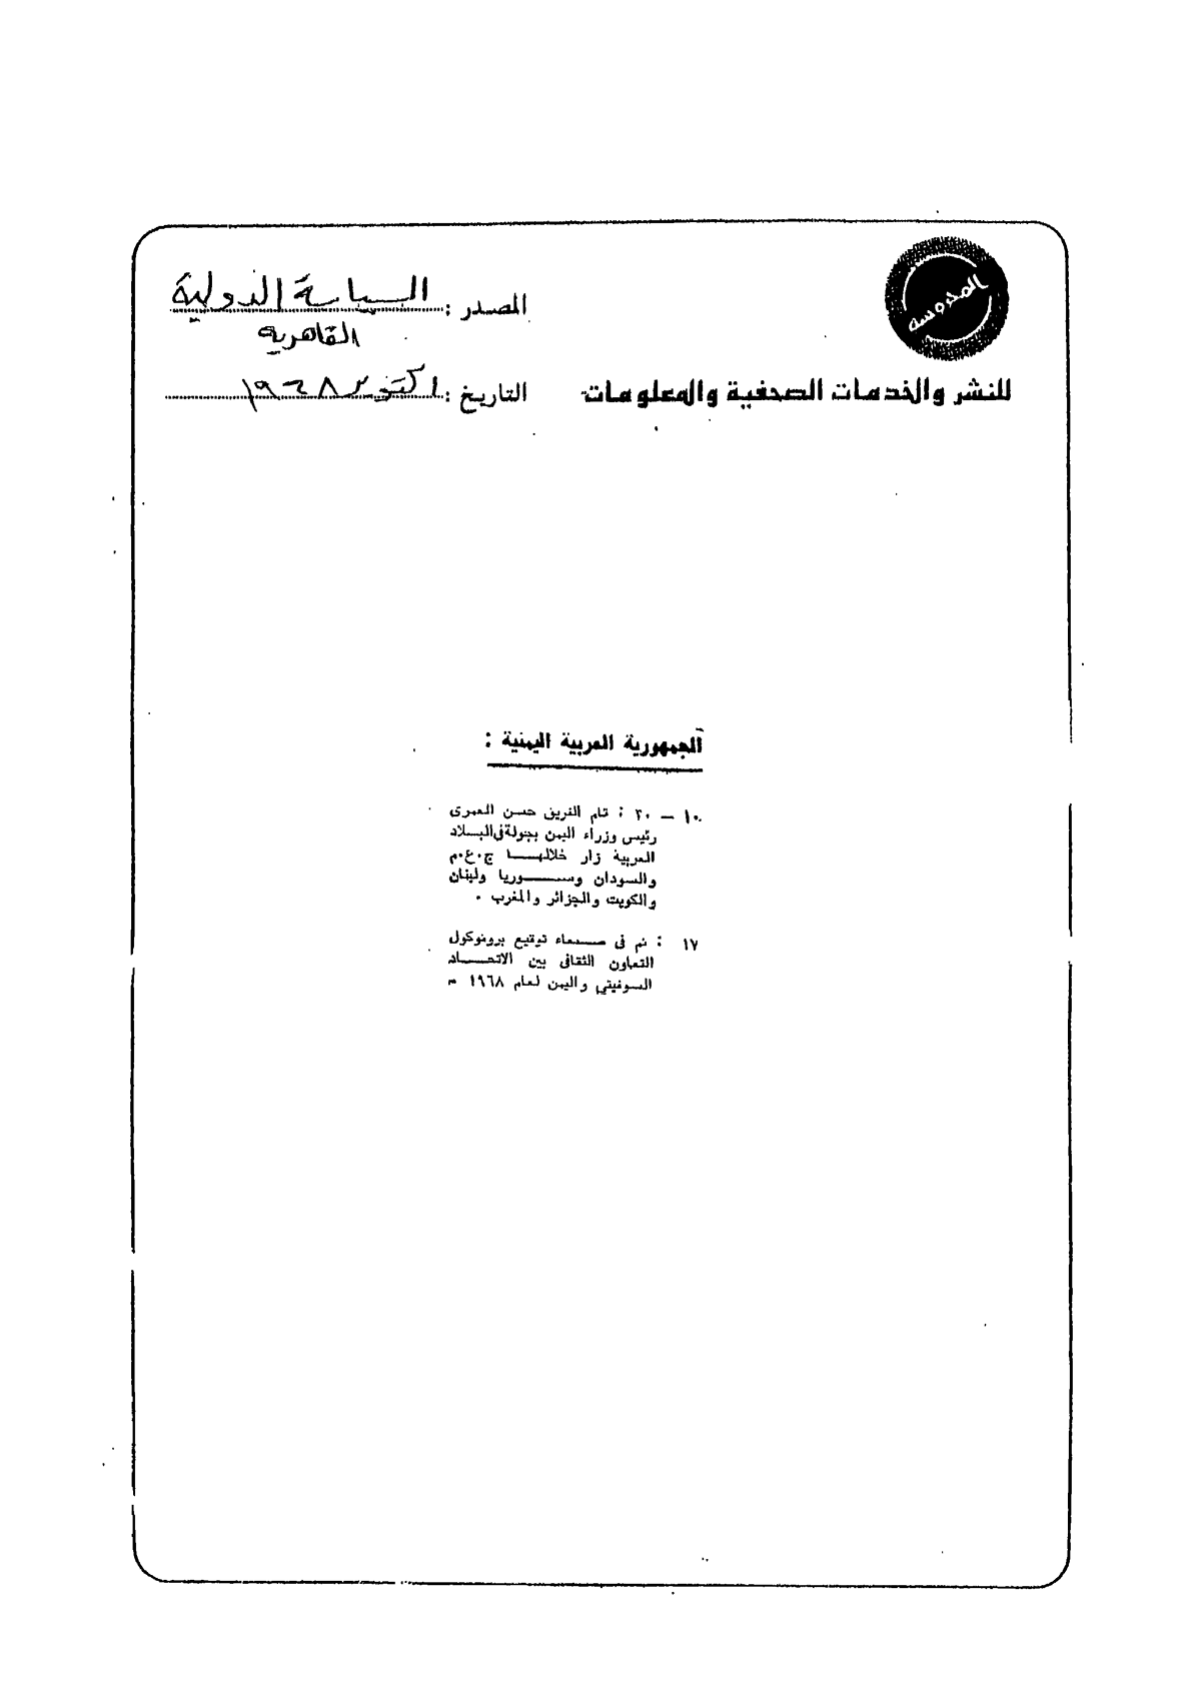 المحروسه
المصدر : السياسة الدولية
القاهريه
للنشر والخدمات الصحفية والمعلومات
التاريخ : اكتوبر ١٩٦٨
الجمهورية العربية اليمنية :
١٠ — ٣٠ : قام الفريق حسن العمرى
رئيس وزراء اليمن بجولة فى البلاد
العربية زار خلالها ج.ع.م
والسودان وسوريا ولبنان
والكويت والجزائر والمغرب .
١٧ : تم فى صنعاء توقيع بروتوكول
التعاون الثقافى بين الاتحاد
السوفيتي واليمن لعام ١٩٦٨ م